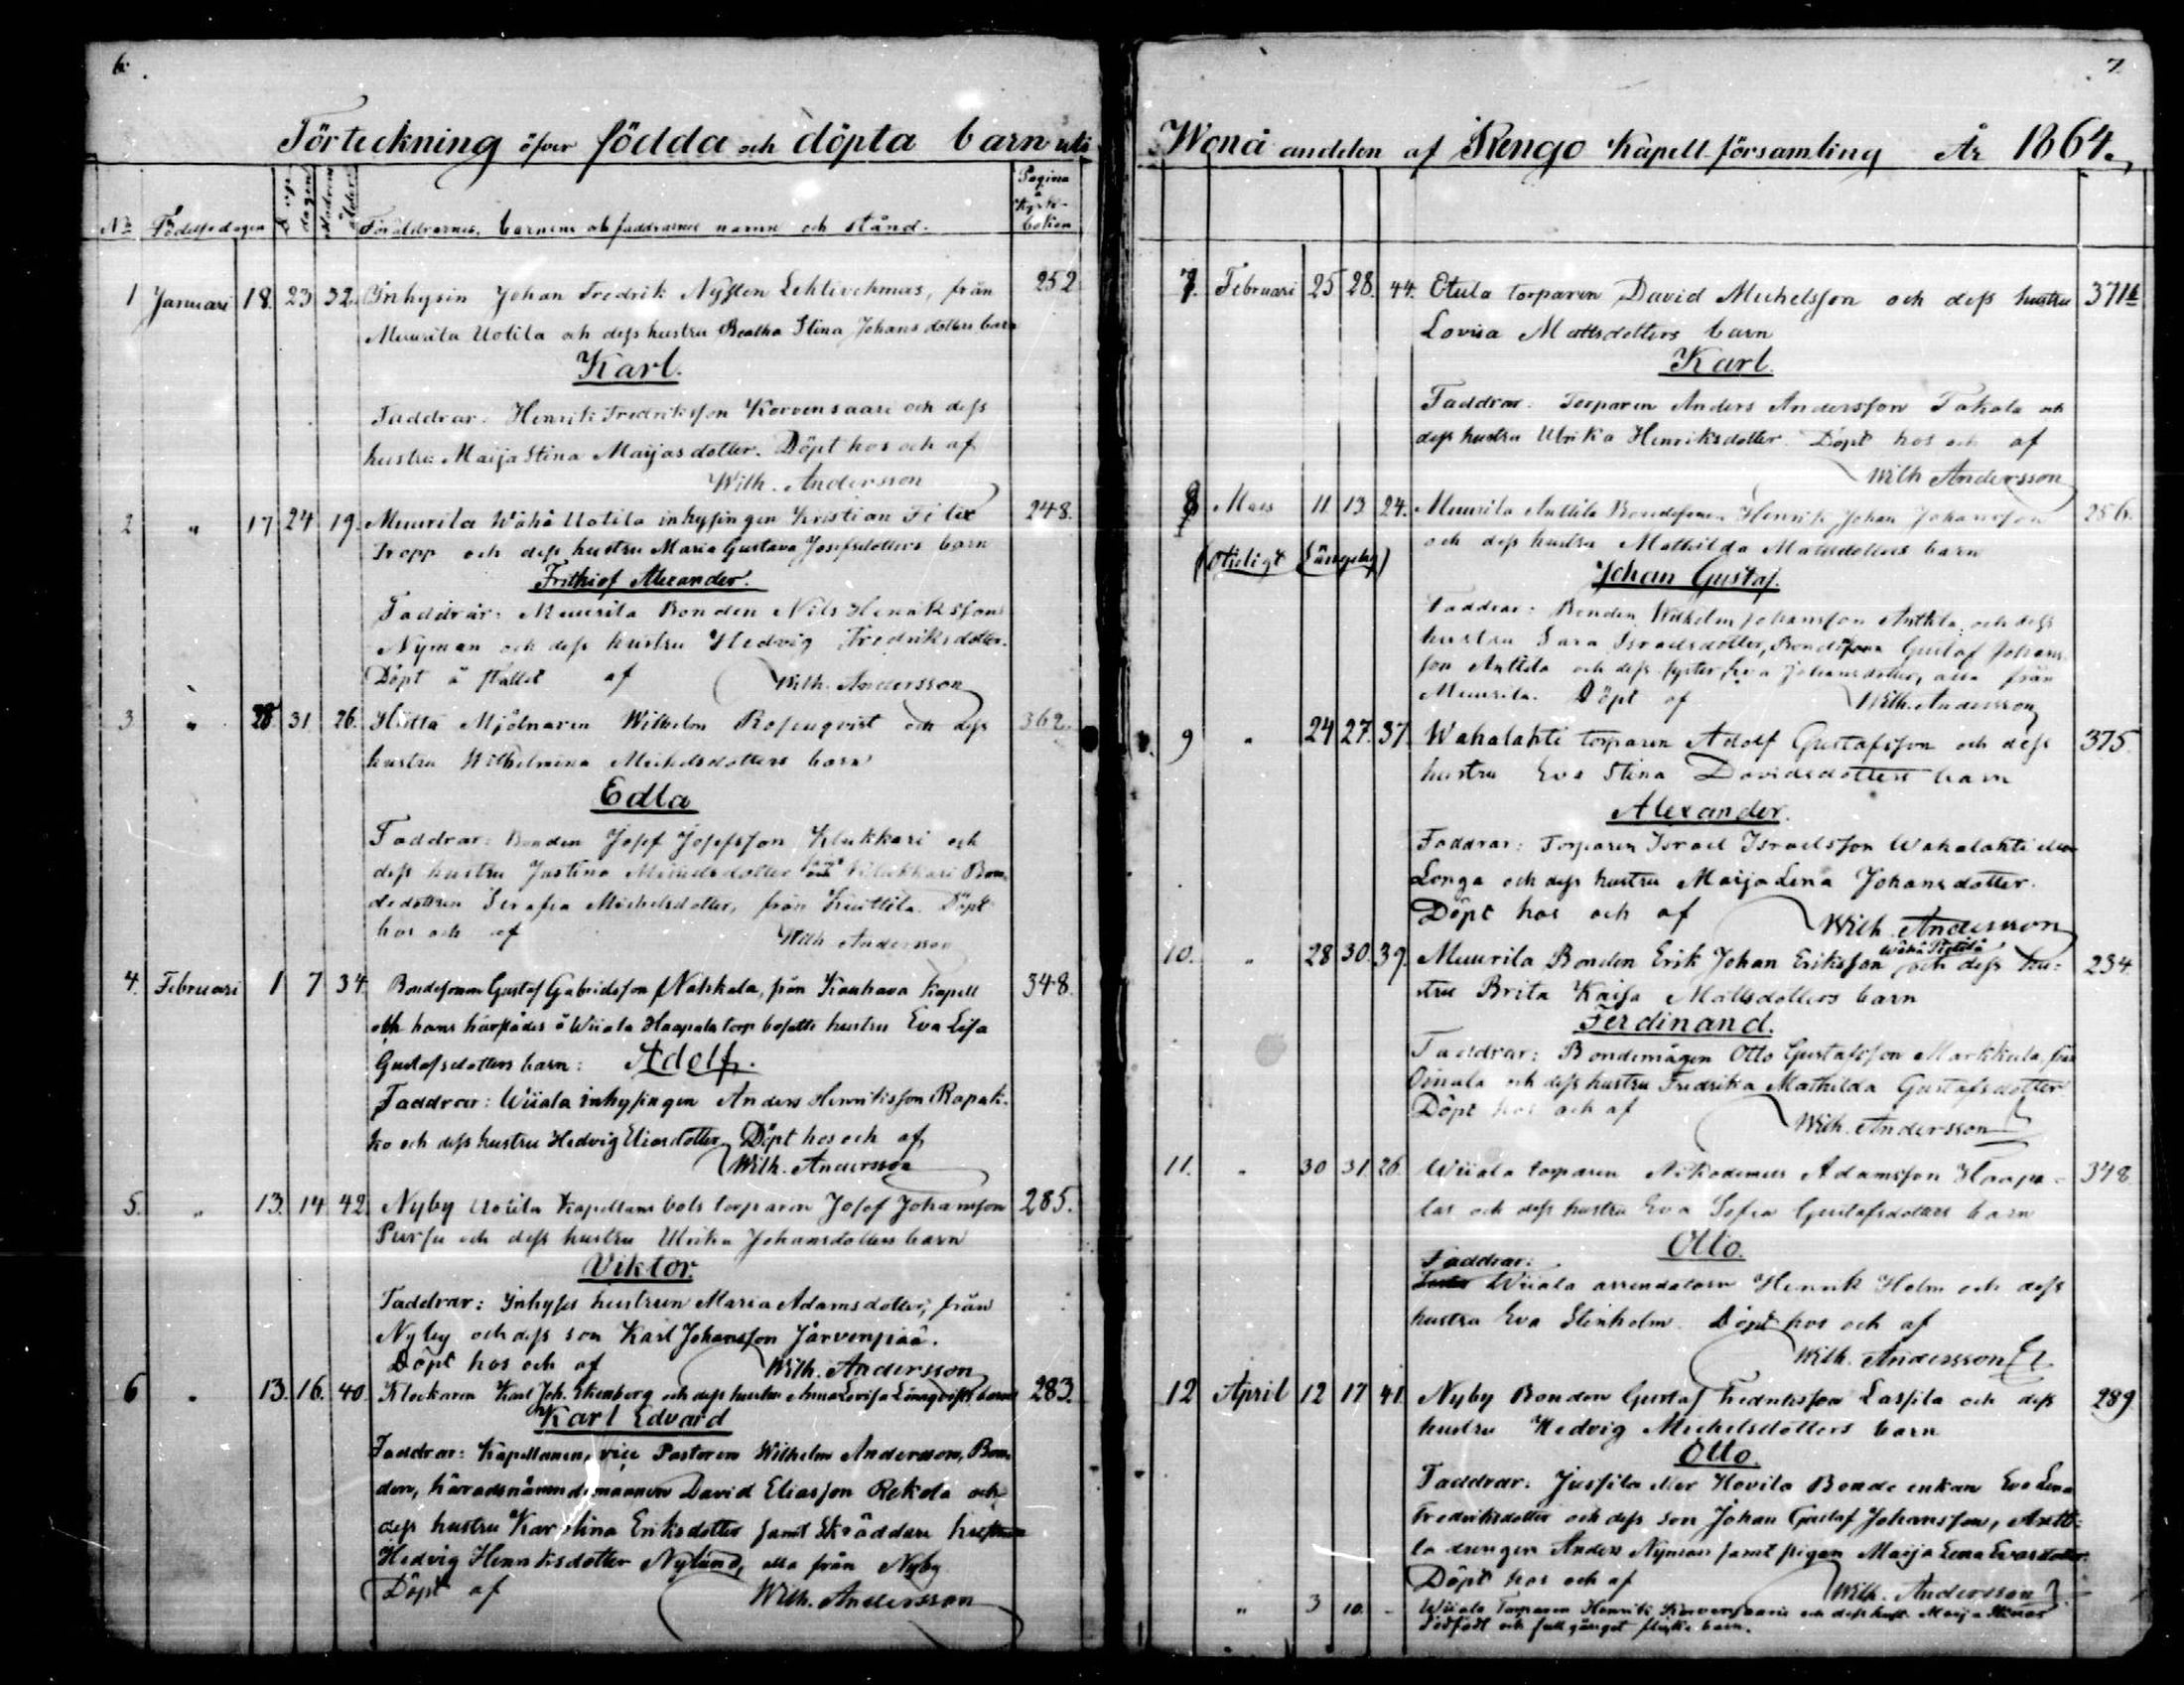 6.
Förteckning öfver födda och döpta barn uti
No Födelsedagen Döpdagen Modrens ålder Föräldrarnes, barnens och faddrarnes namn och stånd. Pagina i Kyrkoboken
1 Januari 18. 23 32. Inhysin Johan Fredrik Nysten Lehtivehmas, från 252
Muurila Uotila och dess hustru Beatha Stina Johans dotters barn
Karl.
Faddrar: Henrik Fredriksson Korvensaari och dess
hustru Maija Stina Maijasdotter. Döpt hos och af
Wilh. Andersson
2 " 17 24 19. Muurila Wähä Uotila inhysingen Kristian Felix 248.
Propp och dess hustru Maria Gustava Josefsdotters barn
Frithiof Alexander.
Faddrar: Muurila Bonden Nils Henriksson
Nyman och dess hustru Hedvig Fredriksdotter.
Döpt å stället af Wilh. Andersson
3 " 28 31. 26. Hiittä Mjölnaren Wilhelm Rosenqvist och dess 362.
hustru Wilhelmina Michelsdotters barn
Edla
Faddrar: Bonden Josef Josefsson Klukkari och
dess hustru Justina Michelsdotter samt Klukkari Bon-
dedottren Serafia Michelsdotter, från Knuttila. Döpt
hos och af Wilh. Andersson
4. Februari 1 7 34 Bondesonen Gustaf Gabrielsson Nahkala, från Kauhava Kapell 348.
och hans härstädes å Wiiala Haapala torp bosatte hustru Eva Lisa
Gustafsdotters barn: Adolf.
Faddrar: Wiiala inhysingen Anders Henriksson Rapak-
ko och dess hustru Hedvig Eliasdotter. Döpt hos och af
Wilh. Andersson
5. " 13. 14 42 Nyby Uotila Kapellans bols torparen Josef Johansson 285.
Pursu och dess hustru Ulrika Johansdotters barn
Viktor.
Faddrar: Inhyses hustrun Maria Adamsdotter, från
Nyby och dess son Karl Johansson Järvenpää.
Döpt hos och af Wilh. Andersson
6 " 13. 16. 40. Klockaren Karl Joh. Ekenberg och dess hustru Anna Lovisa Linnqvists barn 283.
Karl Edvard
Faddrar: Kapellanen, vice Pastoren Wilhelm Andersson, Bon-
den, häradsnämndemannen David Eliasson Rekola och
dess hustru Karolina Eriksdotter samt Skräddare hustrun
Hedvig Henriksdotter Nylund, alla från Nyby
Döpt af Wilh. Andersson
7.
Wånå andelen af Kengo Kapell-församling År 1864.
7. Februari 25 28. 44. Otula torparen David Michelsson och dess hustru 371½
Lovisa Mattsdotters barn
Karl.
Faddrar: Torparen Anders Andersson Takala och
dess hustru Ulrika Henriksdotter. Döpt hos och af
Wilh Andersson
8 Mars 11. 13. 24. Muurila Anttila Bondesonen Henrik Johan Johansson 256.
och dess hustru Mathilda Mattsdotters barn
Johan Gustaf.
Faddrar: Bonden Wilhelm Johansson Anttila och dess
hustru Sara Israelsdotter, Bondesonen Gustaf Johans-
son Anttila och dess syster Eva Johansdotter, alla från
Muurila. Döpt af Wilh. Andersson
9 " 24 27. 37. Wahalahti torparen Adolf Gustafsson och dess 375.
hustru Eva Stina Davidsdotters barn
Alexander.
Faddrar: Torparen Israel Israelsson Wahalahti eller
Longa och dess hustru Maija Lena Johansdotter.
Döpt hos och af Wilh. Andersson
10. " 28 30. 39. Muurila Bonden Erik Johan Eriksson Wähä Pietilä och dess hu- 234
stru Brita Kaisa Mattsdotters barn
Ferdinand.
Faddrar: Bondemågen Otto Gustafsson Markkula, från
Oinala och dess hustru Fredrika Mathilda Gustafsdotter
Döpt hos och af
Wilh. Andersson
11. " 30 31. 26. Wiiala torparen Nikodemus Adamsson Haapa- 348
las och dess hustru Eva Sofia Gustafsdotters barn
Otto.
Faddrar:
Wiiala arrendatorn Henrik Holm och dess
hustru Eva Stenholm. Döpt hos och af
Wilh. Andersson
12 April 12 17 41. Nyby Bonden Gustaf Fredriksson Lassila och dess 289
hustru Hedvig Michelsdotters barn
Otto.
Faddrar: Jussila eller Hovila Bonde enkan Eva Lena
Fredriksdotter och dess son Johan Gustaf Johansson, Antti-
la drengen Anders Nyman samt pigan Maija Lena Evasdotter.
Döpt hos och af Wilh. Andersson
" 3 10. - Wiiala Torparen Henrik Korvensaaris och dess hust. Maija Stinas
dödfödt och fullgånget flicko barn.